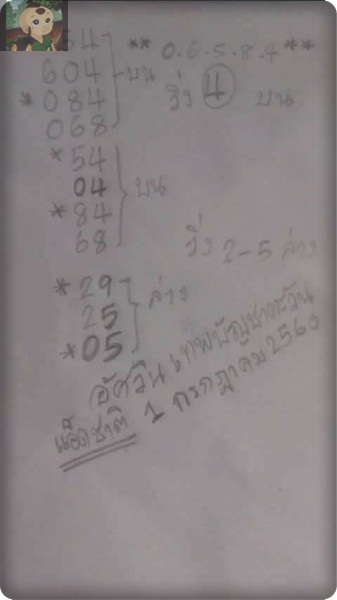 54 ** 0.6.5.8.4 **
604 บน วิ่ง 4 บน
* 084
068
* 54
04 บน
* 84
68
วิ่ง 2-5 ล่าง
* 29 ล่าง
25
* 05
อัศวินเทพบัญชาตะวัน
แอ็ดชาติ 1 กรกฎาคม 2560